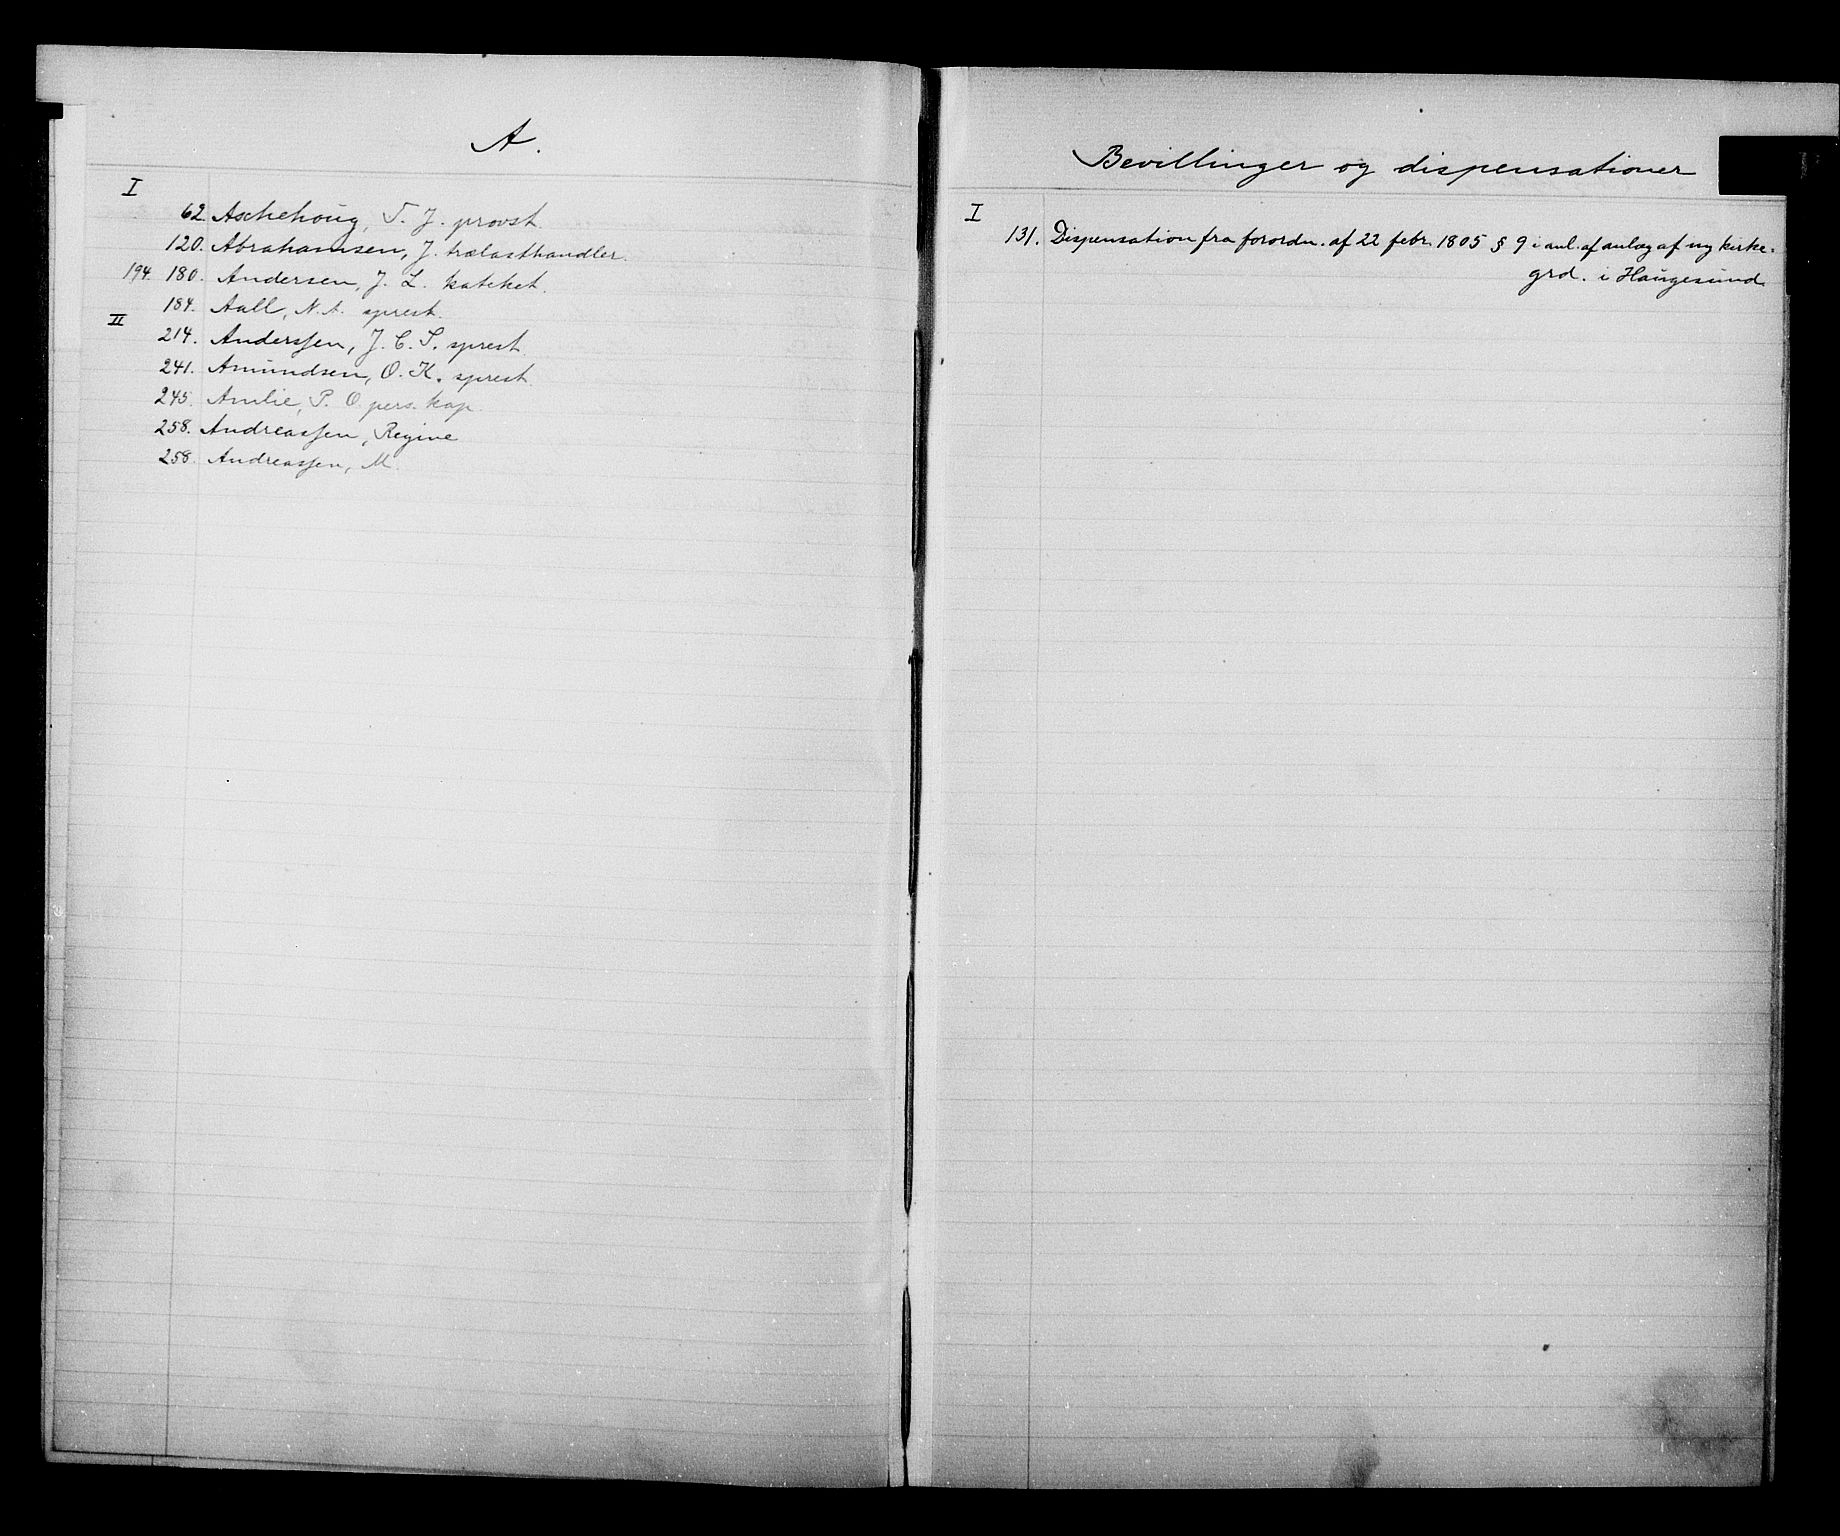 A.
I
62. Aschehoug, T. J. provst.
120. Abrahamsen, J. trælasthandler.
194. 180. Andersen, J. L. kateket.
184. Aall, N. A. sprest.
II
214. Anderssen, J. C. S. sprest.
241. Amundsen, O. K. sprest.
245. Amlie, P. O. pers. kap.
258. Andreassen, Regine
258. Andreassen, M.
Bevillinger og dispensationer
I
131. Dispensation fra forordn. af 22 febr. 1805 § 9 i anl. af anlæg af ny kirke-
grd. i Haugesund.